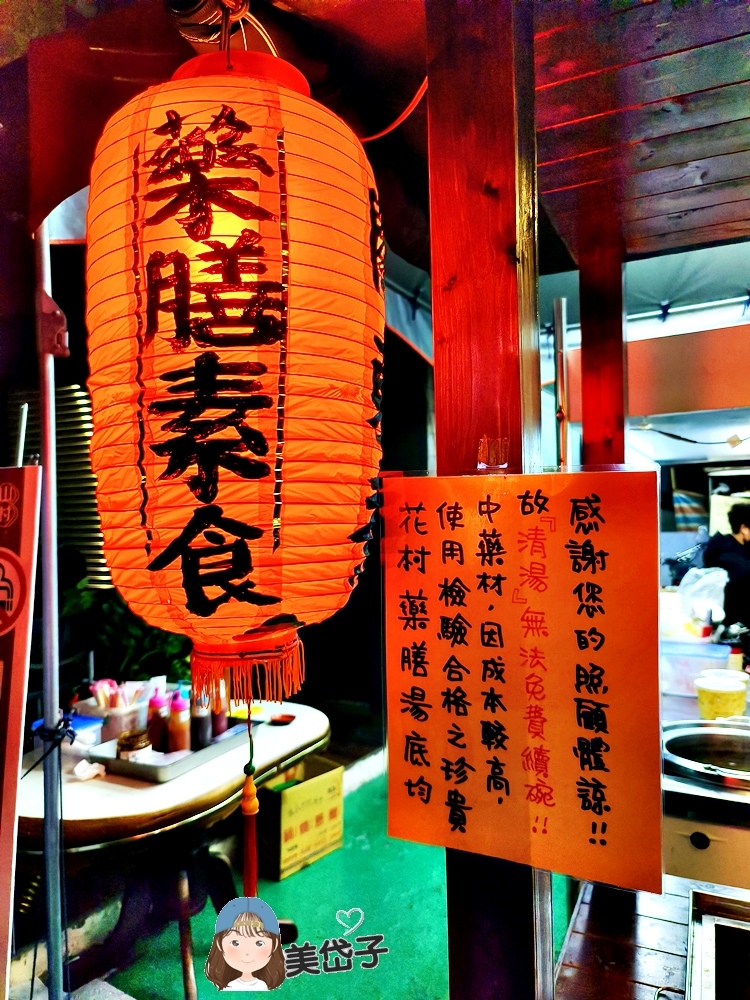 藥膳素食
花村藥膳湯底均
使用檢驗合格之珍貴
中藥材,因成本較高,
故『清湯』無法免費續碗!!
感謝您的照顧體諒!!
美岱子